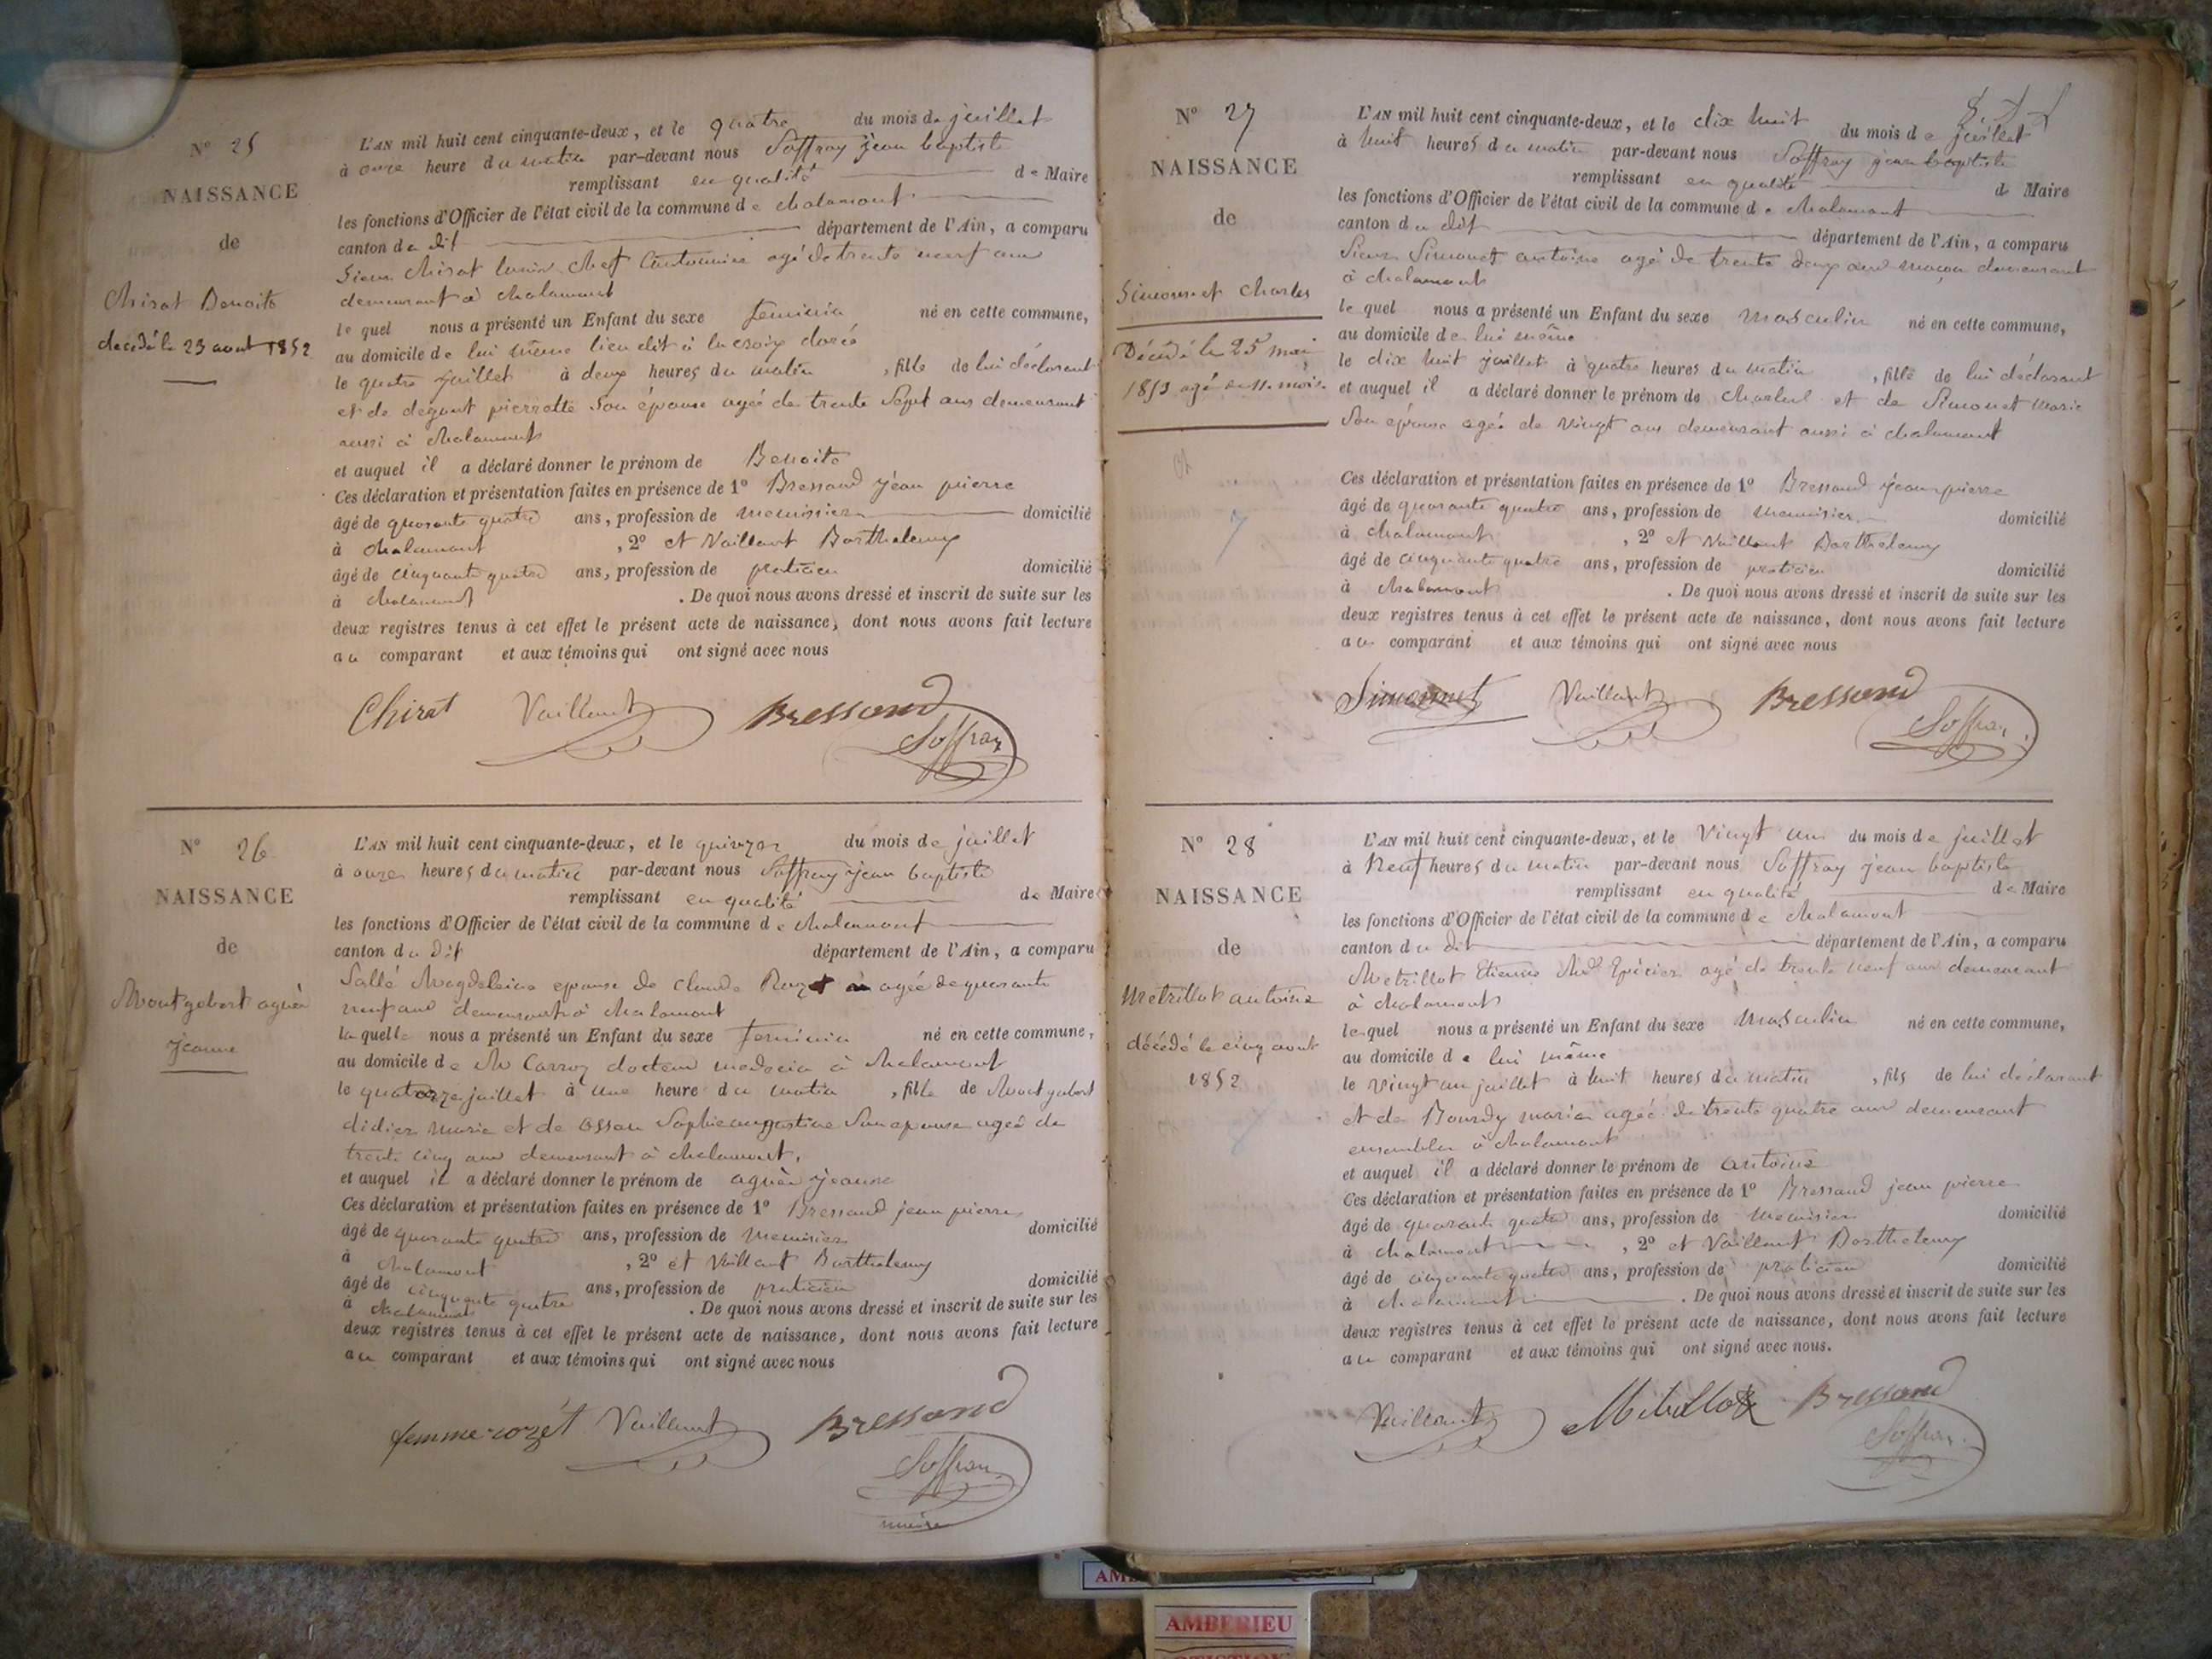 N° 25
NAISSANCE
de
Chirat Benoite
décédé le 23 aout 1852
L'AN mil huit cent cinquante-deux, et le quatre du mois de juillet
à onze heure du matin par-devant nous Soffray jean baptiste
remplissant en qualité de Maire
les fonctions d'Officier de l'état civil de la commune de chalamont
canton du dit département de l'Ain, a comparu
Sieur Chirat chef Cantonnier agé de trente neuf ans
demeurant à chalamont
le quel nous a présenté un Enfant du sexe feminin né en cette commune,
au domicile de lui même lieu dit à la croix dorée
le quatre juillet à deux heures du matin , fille de lui déclarant
et de degout pierrotte Son épouse agée de trente Sept ans demeurant
aussi à chalamont
et auquel il a déclaré donner le prénom de Benoite
Ces déclaration et présentation faites en présence de 1° Bressand jean pierre
âgé de quarante quatre ans, profession de menuisier domicilié
à chalamont , 2° et Vaillant Barthelemy
âgé de cinquante quatre ans, profession de praticien domicilié
à chalamont . De quoi nous avons dressé et inscrit de suite sur les
deux registres tenus à cet effet le présent acte de naissance, dont nous avons fait lecture
au comparant et aux témoins qui ont signé avec nous
Chirat Vaillant Bressand
Soffray
N° 26
NAISSANCE
de
Montgobert agnès
jeanne
L'AN mil huit cent cinquante-deux, et le quinze du mois de juillet
à onze heures du matin par-devant nous Soffray jean baptiste
remplissant en qualité de Maire
les fonctions d'Officier de l'état civil de la commune de chalamont
canton du dit département de l'Ain, a comparu
Sallé Magdeleine epouse de claude Rozet agée de quarante
neuf ans demeurant à chalamont
la quelle nous a présenté un Enfant du sexe feminin né en cette commune,
au domicile de Mr Carroz docteur medecin à chalamont
le quatorze juillet à une heure du matin , fille de Montgobert
didier marie et de Ossan Sophie augustine Son epouse agée de
trente cinq ans demeurant à chalamont.
et auquel il a déclaré donner le prénom de agnès jeanne
Ces déclaration et présentation faites en présence de 1° Bressand jean pierre
âgé de quarante quatre ans, profession de Menuisier domicilié
à chalamont , 2° et Vaillant Barthelemy
âgé de cinquante quatre ans, profession de praticien domicilié
à chalamont . De quoi nous avons dressé et inscrit de suite sur les
deux registres tenus à cet effet le présent acte de naissance, dont nous avons fait lecture
au comparant et aux témoins qui ont signé avec nous
femme rozét Vaillant Bressand
Soffray
maire
N° 27
NAISSANCE
de
Simonnet Charles
Décédé le 25 mai
1853 agé de 11 mois
L'AN mil huit cent cinquante-deux, et le dix huit du mois de juillet
à huit heures du matin par-devant nous Soffray jean baptiste
remplissant en qualité de Maire
les fonctions d'Officier de l'état civil de la commune de chalamont
canton du dit département de l'Ain, a comparu
Sieur Simonet antoine agé de trente deux ans maçon demeurant
à chalamont
le quel nous a présenté un Enfant du sexe masculin né en cette commune,
au domicile de lui même
le dix huit juillet à quatre heures du matin , fille de lui déclarant
et auquel il a déclaré donner le prénom de charles et de Simonet Marie
Son épouse agée de vingt ans demeurant aussi à chalamont
Ces déclaration et présentation faites en présence de 1° Bressand jean pierre
âgé de quarante quatre ans, profession de menuisier domicilié
à chalamont , 2° et Vaillant Barthelemy
âgé de cinquante quatre ans, profession de praticien domicilié
à chalamont . De quoi nous avons dressé et inscrit de suite sur les
deux registres tenus à cet effet le présent acte de naissance, dont nous avons fait lecture
au comparant et aux témoins qui ont signé avec nous
Simonnet Vaillant Bressand
Soffray
N° 28
NAISSANCE
de
Metrillot antoine
décédé le cinq aout
1852
L'AN mil huit cent cinquante-deux, et le Vingt un du mois de juillet
à Neuf heures du matin par-devant nous Soffray jean baptiste
remplissant en qualité de Maire
les fonctions d'Officier de l'état civil de la commune de chalamont
canton du dit département de l'Ain, a comparu
Metrillot Etienne Md Epicier agé de trente neuf ans demeurant
à chalamont
le quel nous a présenté un Enfant du sexe Masculin né en cette commune,
au domicile de lui même
le vingt un juillet à huit heures du matin , fils de lui déclarant
et de Bourdy marie agée de trente quatre ans demeurant
ensembles à chalamont
et auquel il a déclaré donner le prénom de antoine
Ces déclaration et présentation faites en présence de 1° Bressand jean pierre
âgé de quarante quatre ans, profession de menuisier domicilié
à chalamont , 2° et Vaillant Barthelemy
âgé de cinquante quatre ans, profession de praticien domicilié
à chalamont . De quoi nous avons dressé et inscrit de suite sur les
deux registres tenus à cet effet le présent acte de naissance, dont nous avons fait lecture
au comparant et aux témoins qui ont signé avec nous.
Vaillant Metrillot Bressand
Soffray
AMBERIEU